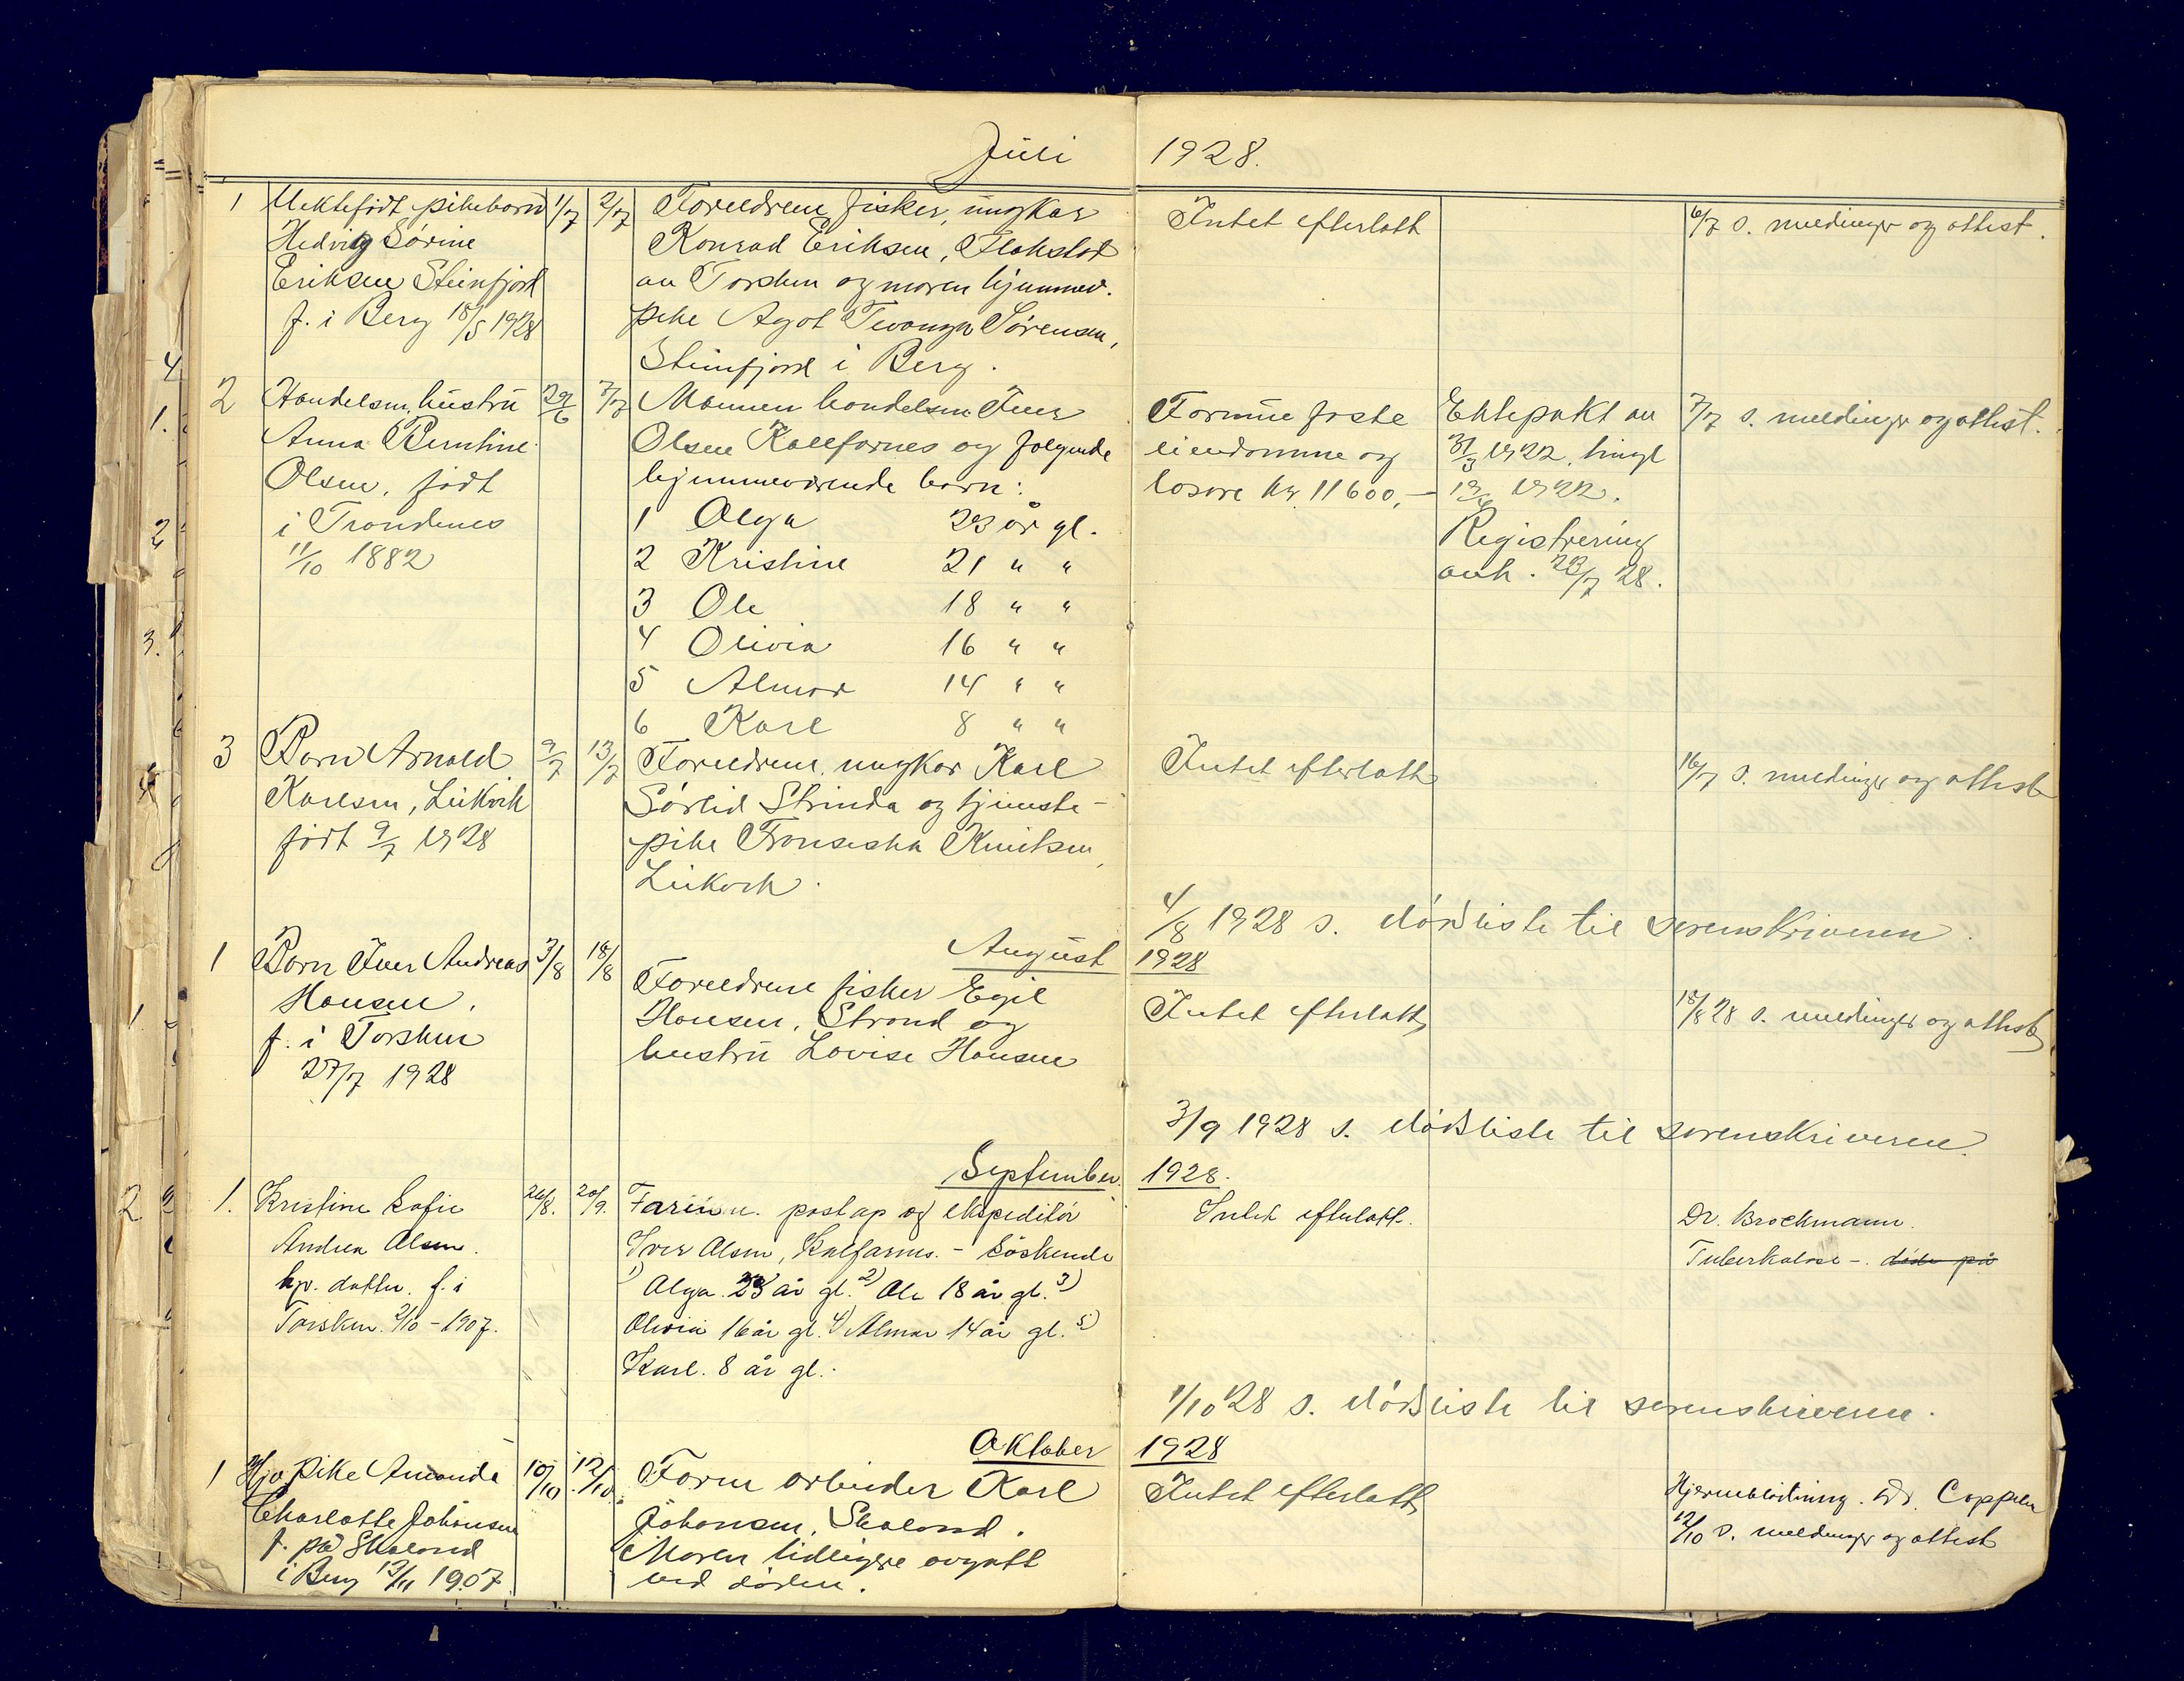 Juli 1928.
1 Uektefödt pikebarn 1/7 2/7 Foreldrene fisker, ungkar Intet efterlatt 6/7 s. meldinger og attest.
Hedvig Sörine Konrad Eriksen, Flakstad
Eriksen Steinfjord av Torsken og moren hjemmev.
f. i Berg 18/5 1928 pike Agot Sörensen,
Steinfjord i Berg.
2 Handelsm. hustru 29/6 7/7 Mannen handelsm Iver Formue faste Ektepakt av 7/7 s. meldinger og attest.
Anna Berntine Olsen Kalfarnes og følgende eiendomme og 31/3 1922, tingl
Olsen, født hjemmeværende barn: løsøre kr. 11600,- 19/6 1922.
i Trondenes 1 Olga 23 år gl. Registrering
11/10 1882 2 Kristine 21 " " avh. 23/7 28.
3 Ole 18 " "
4 Olivia 16 " "
5 Almar 14 " "
6 Karl 8 " "
3 Barn Arnold 9/7 13/7 Foreldrene, ungkar Karl Intet efterlatt 16/7 s. meldinger og attest
Karlsen, Leikvik Sörlid Strinda og tjeneste-
født 9/7 1928 pike Fransiska Knutsen,
Leikvik.
4/8 1928 s. dödsliste til sorenskriveren.
August 1928
1 Barn Iver Andreas 3/8 18/8 Foreldrene fisker Egil Intet efterlatt 18/8 28 s. meldinger og attest
Hansen, Hansen, Strand og
f. i Torsken hustru Lovise Hansen
27/7 1928
3/9 1928 s. dödsliste til sorenskriveren.
September 1928.
1. Kristine Sofie 26/8. 20/9. Faren postap og ekspeditör Intet efterlatt. Dr. Brochmann.
Andrea Olsen. Iver Olsen, Kalfarnes. - Söskende Tuberkulose -. døde på
hp. datter. f. i 1) Olga. 23 år gl. 2) Ole 18 år gl. 3)
Torsken. 2/10 - 1907. Olivia 16 år gl. 4) Almar 14 år gl. 5)
Karl. 8 år gl.
1/10 28 s. dödsliste til sorenskriveren.
Oktober 1928
1 Hjv pike Amanda 10/10 12/10 Faren arbeider Karl Intet efterlatt Hjerneblödning. Dr. Coppelen
Charlotte Johansen Johansen, Skaland. 12/10 s. meldinger og attest
f. på Skaland Moren tidligere avgått
i Berg 13/11 1907 ved döden.
4
1.
2
3.
4
1
2